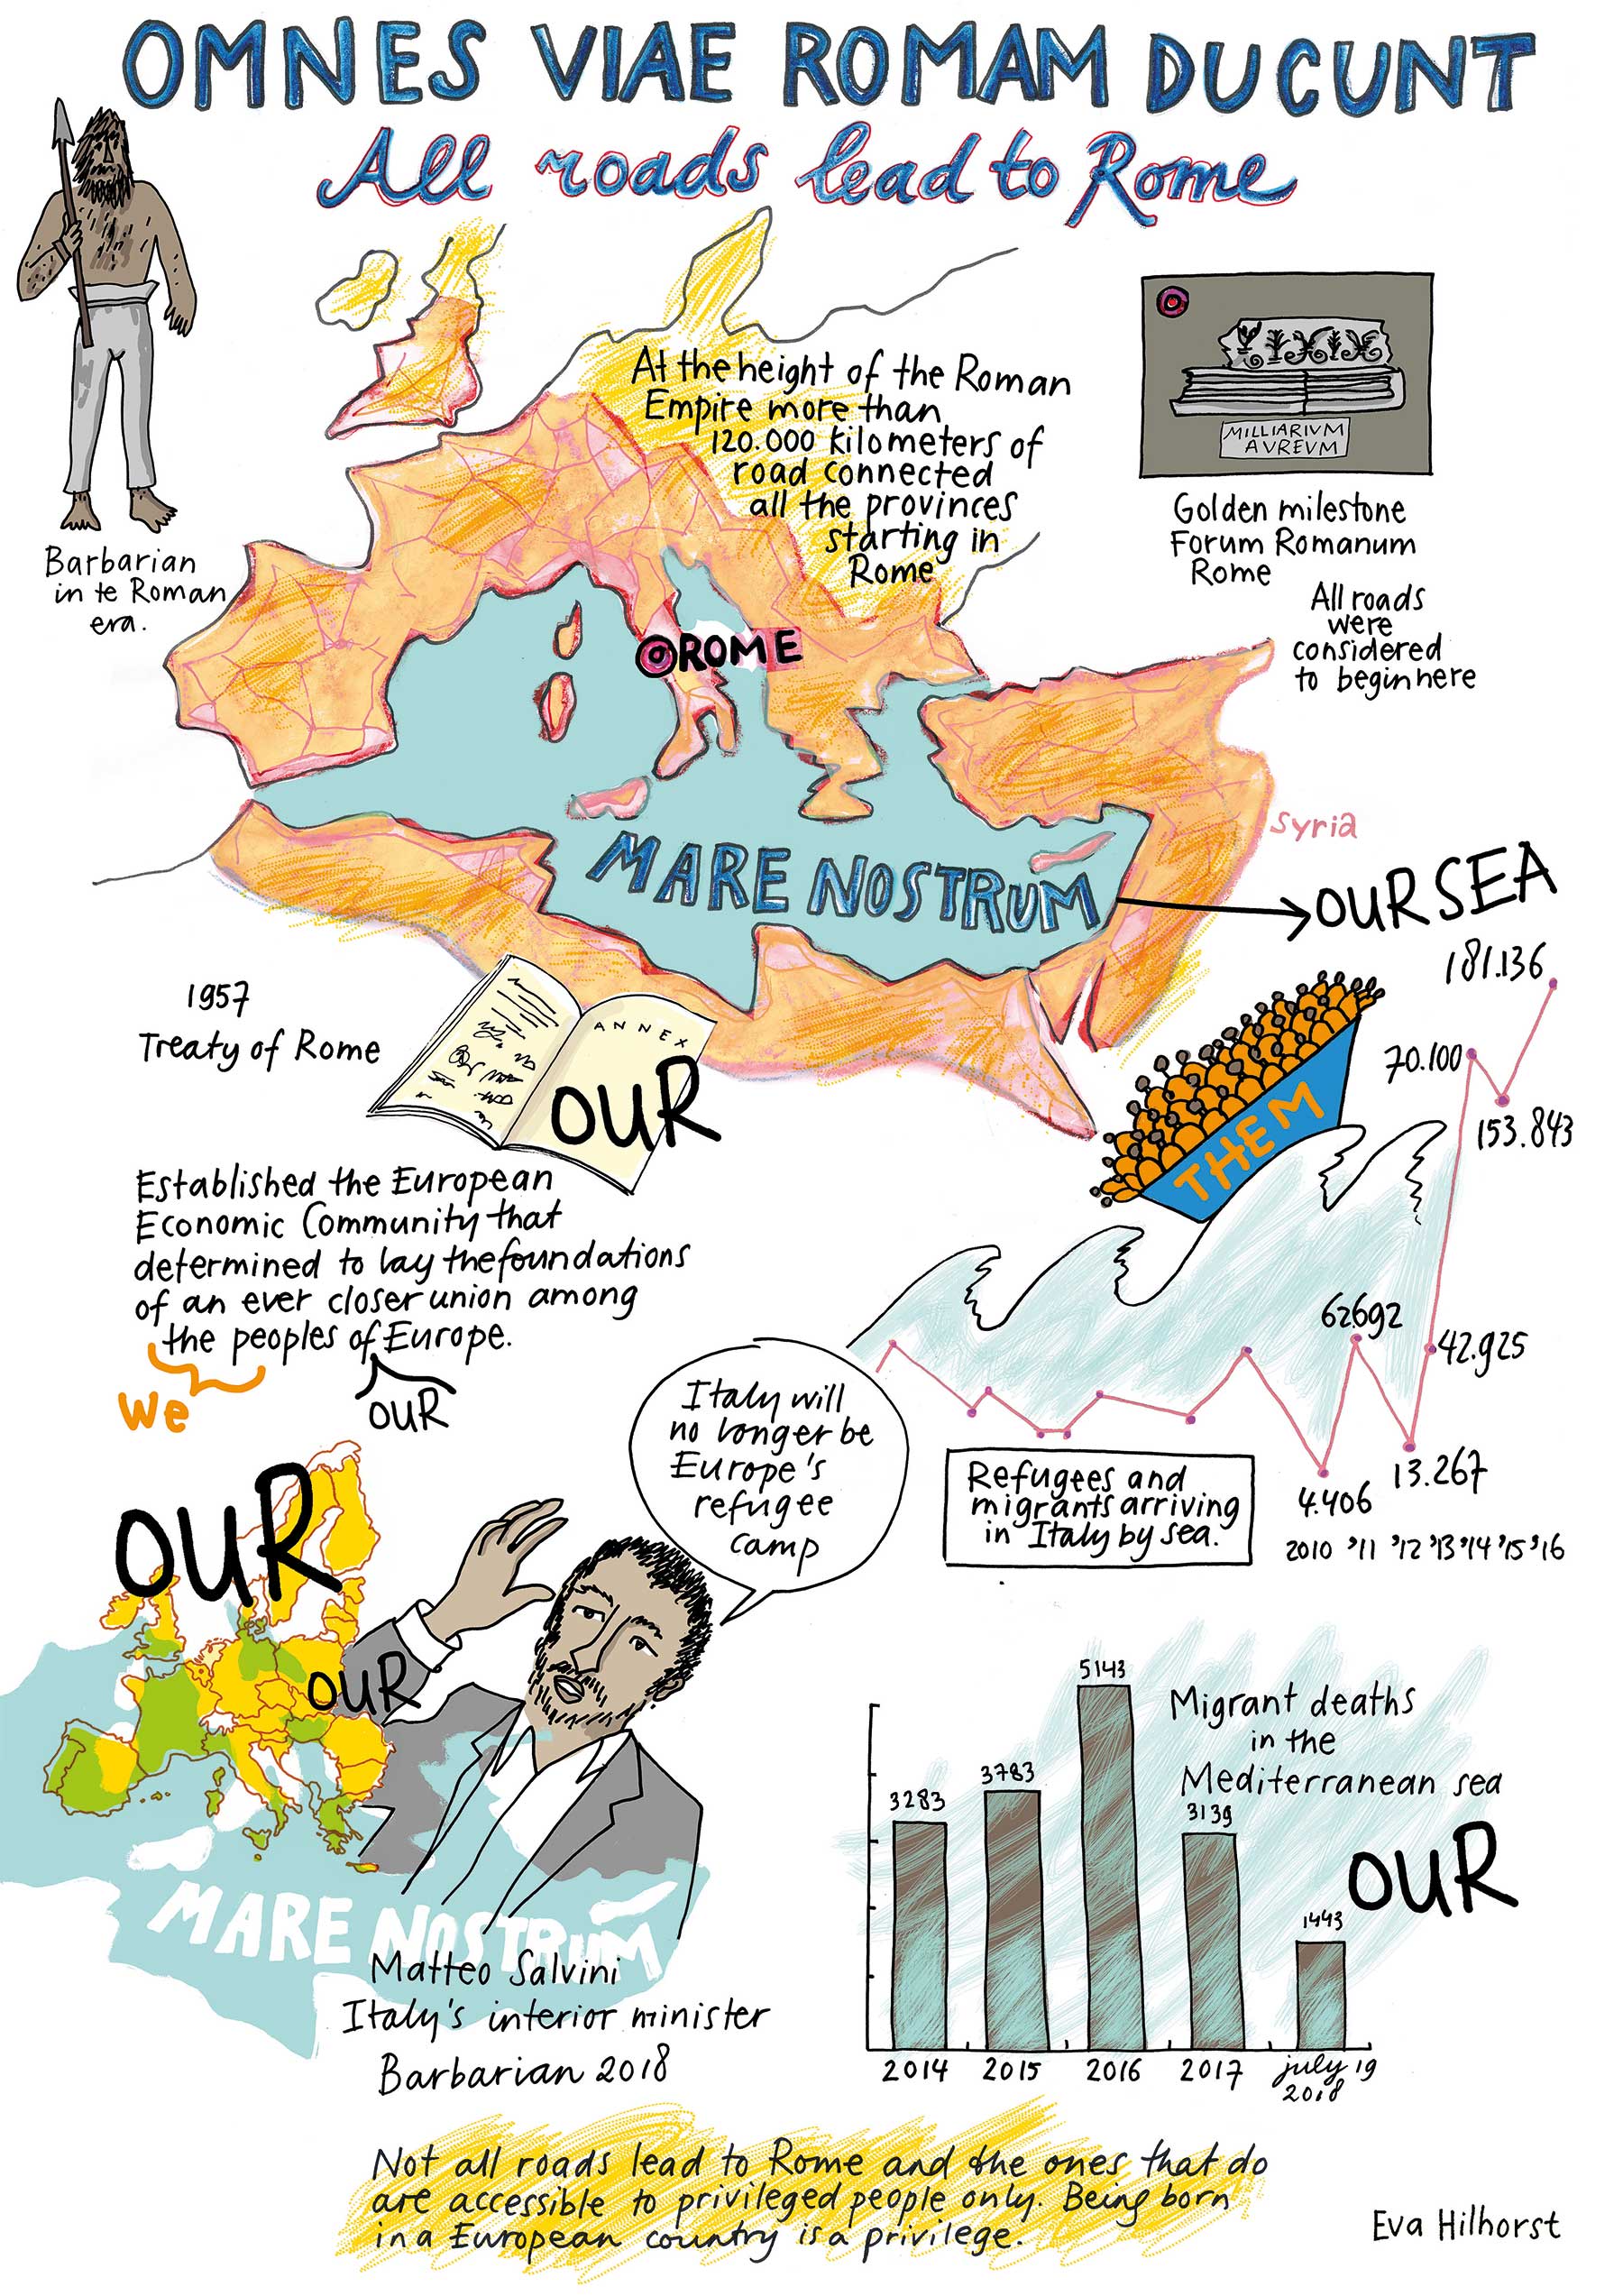 OMNES VIAE ROMAM DUCUNT
All roads lead to Rome
Barbarian
in te Roman
era.
At the height of the Roman
Empire more than
120.000 kilometers of
road connected
all the provinces
starting in
Rome
MILLIARIVM
AVREVM
Golden milestone
Forum Romanum
Rome
All roads
were
considered
to begin here
ROME
Syria
MARE NOSTRUM
OUR SEA
1957
Treaty of Rome
ANNEX
OUR
Established the European
Economic Community that
determined to lay the foundations
of an ever closer union among
the peoples of Europe.
We
OUR
THEM
181.136
70.100
153.843
62692
42.925
13.267
4.406
2010 '11 '12 '13 '14 '15 '16
Refugees and
migrants arriving
in Italy by sea.
Italy will
no longer be
Europe's
refugee
camp
OUR
OUR
MARE NOSTRUM
Matteo Salvini
Italy's interior minister
Barbarian 2018
Migrant deaths
in the
Mediterranean sea
OUR
3283
3783
5143
3139
1443
2014 2015 2016 2017 july 19
2018
Not all roads lead to Rome and the ones that do
are accessible to privileged people only. Being born
in a European country is a privilege.
Eva Hilhorst